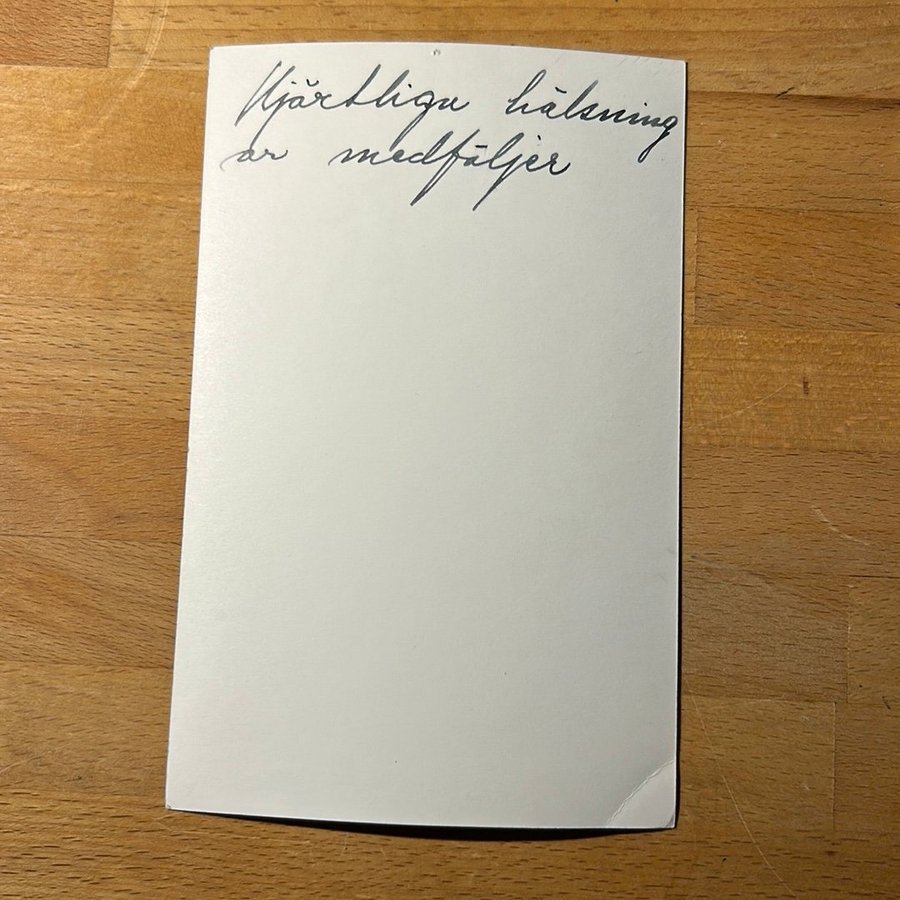 Hjärtliga hälsning
ar medföljer